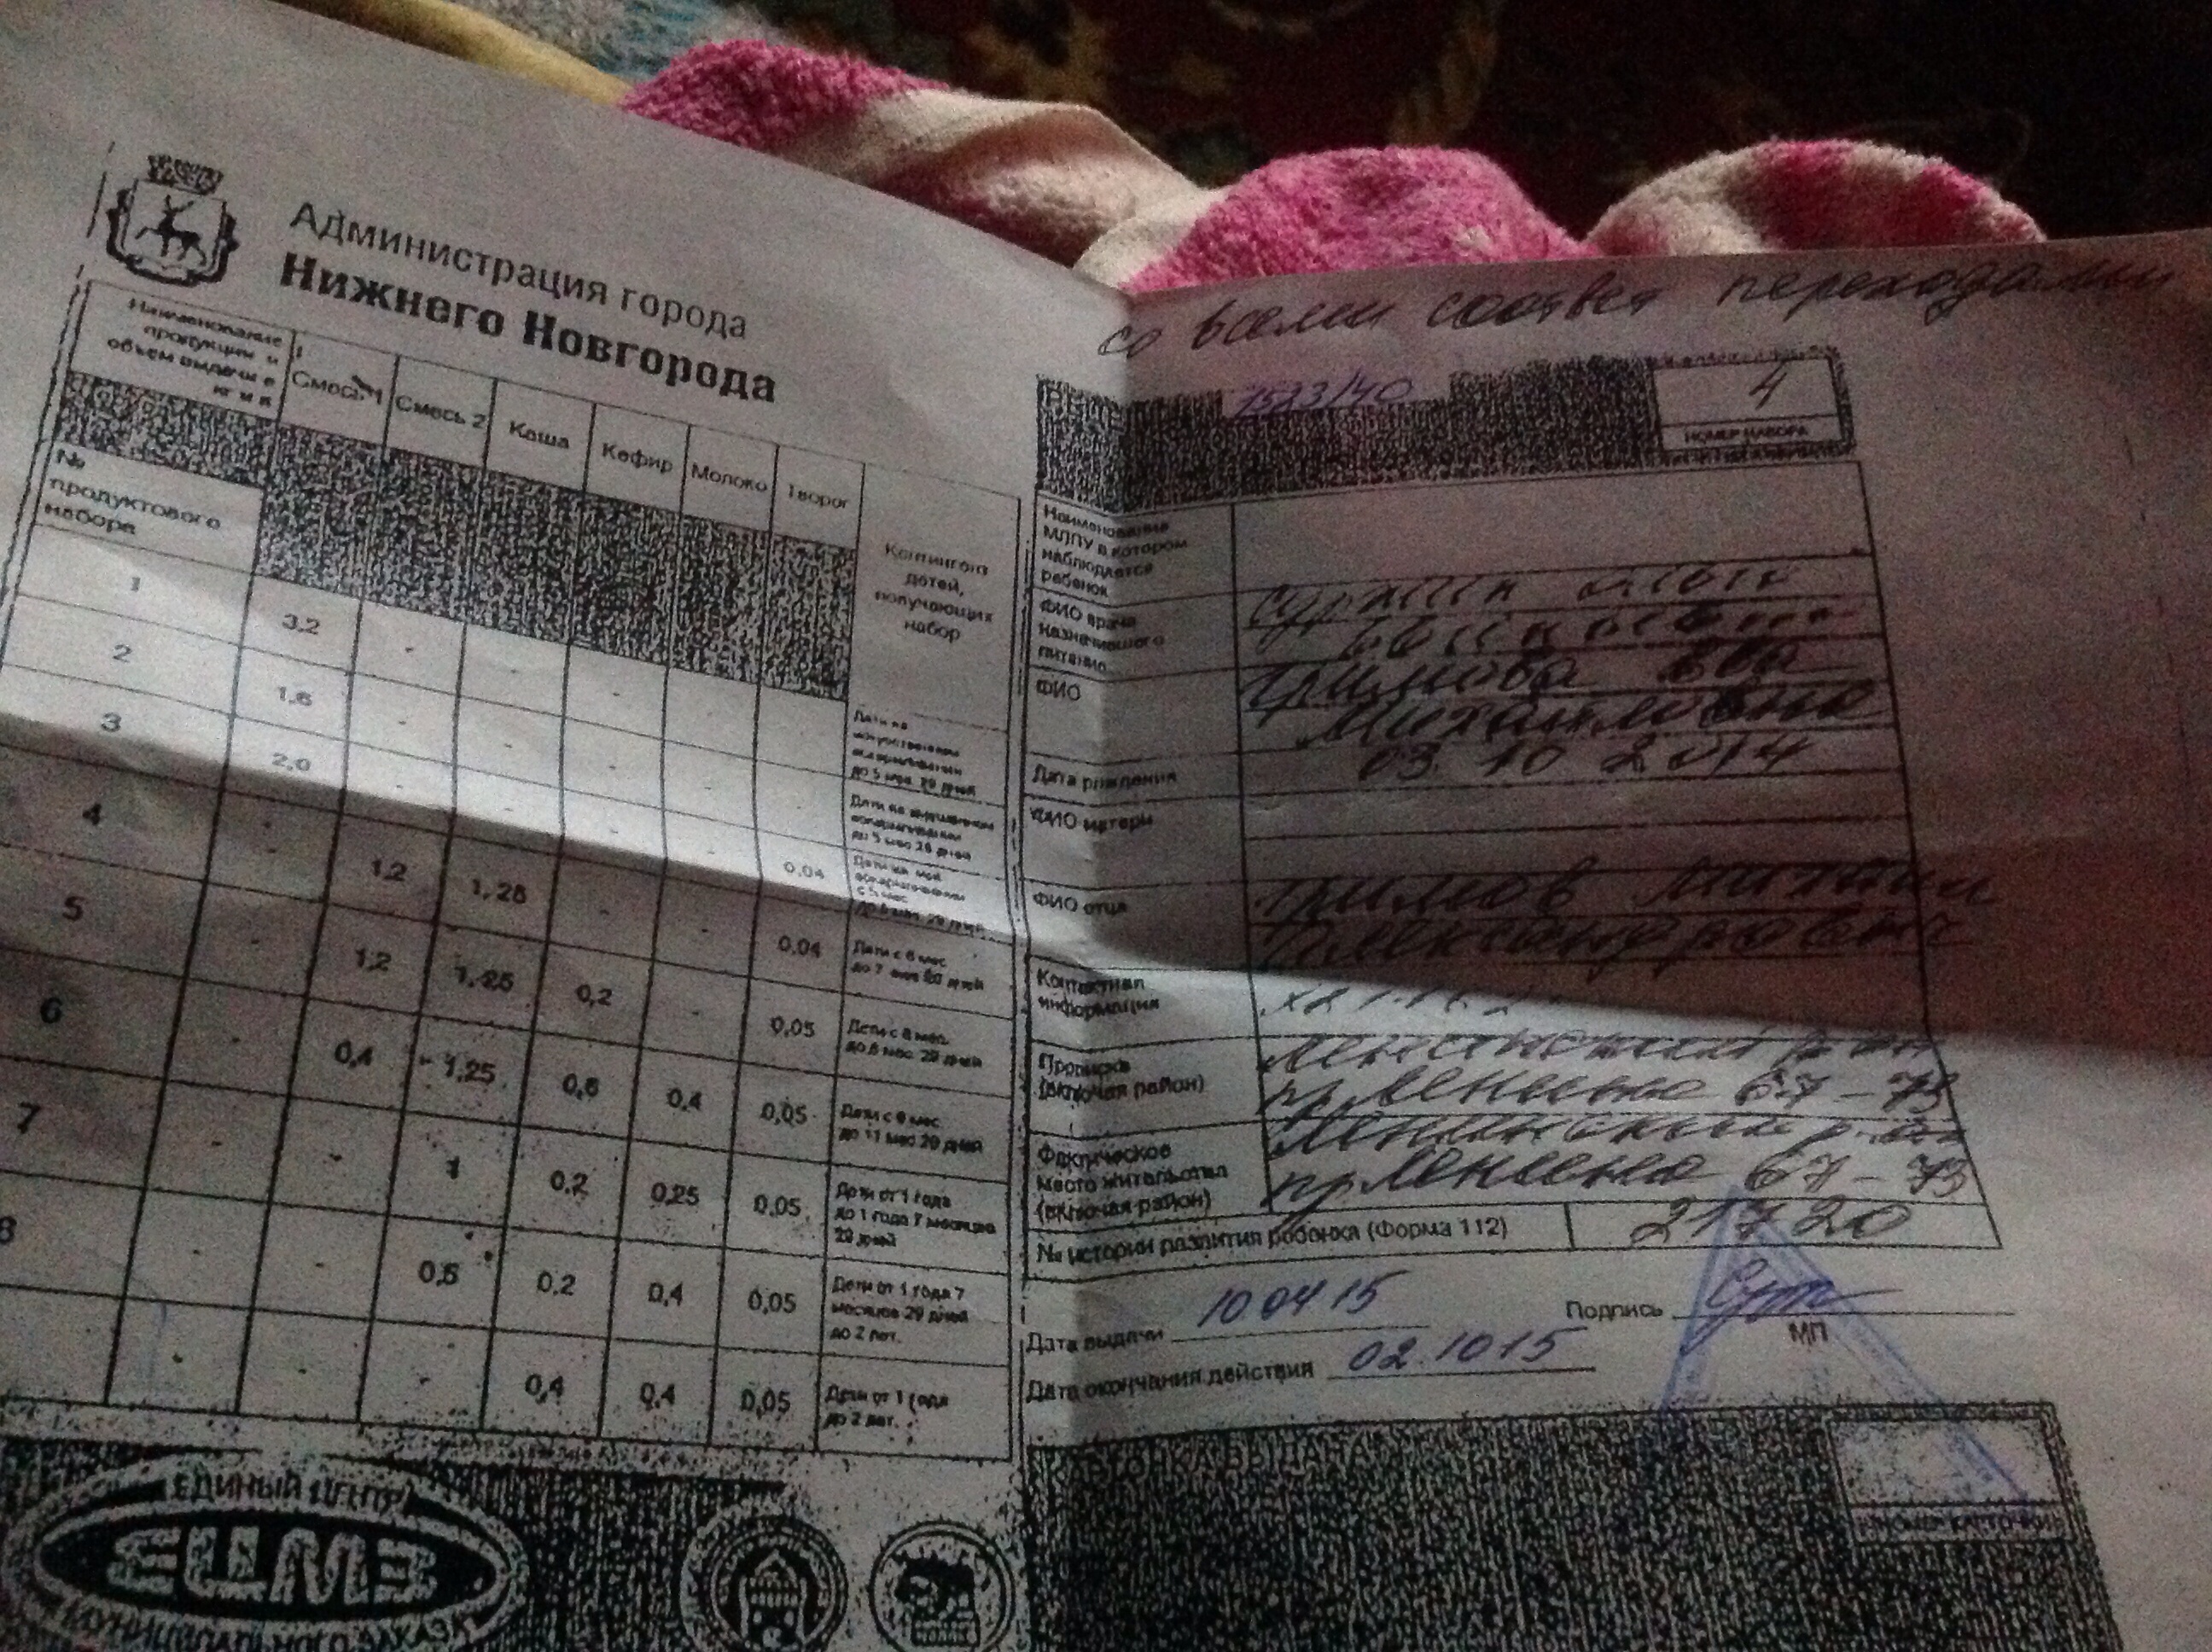 Администрация города
Нижнего Новгорода
Наименование
продукции и
объем выдачи в
Смесь 1
Смесь 2
Каша
Кефир
Молоко
Творог
Контингент
детей,
получающих
набор
№
продуктового
набора
1
3,2
-
-
-
2
1,6
-
-
-
-
Дети на
искусственном
вскармливании
до 5 мес. 29 дней
3
2,0
-
-
-
-
Дети на смешанном
вскармливании
до 5 мес 29 дней
4
-
1,2
1,25
-
-
0,04
5
-
1,2
1,25
0,2
-
0,04
Дети с 6 мес
до 7 мес 29 дней
6
-
0,4
1,25
0,6
0,4
0,05
Дети с 8 мес.
до 8 мес. 29 дней
7
-
-
1
0,2
0,25
0,05
Дети с 9 мес.
до 11 мес 29 дней
8
-
-
0,5
0,2
0,4
0,05
Дети от 1 года
до 1 года 7 месяцев
29 дней
0,05
Дети от 1 года 7
месяцев 29 дней
до 2 лет.
-
-
-
0,4
0,4
0,05
Дети от 1 года
до 2 лет.
ЕДИНЫЙ ЦЕНТР
ЕЦМЗ
МУНИЦИПАЛЬНОГО ЗАКАЗА
со всеми соответ переходами
1523/40
4
НОМЕР НАБОРА
Наименование
МЛПУ в котором
наблюдается
ребенок
ФИО врача
назначившего
питание
ФИО
Ева
Михайловна
Дата рождения
03. 10 2014
ФИО матери
ФИО отца
Александрович
Контактная
информация
Прописка
(включая район)
Ленинский р-он
пр. Ленина 67 - 73
Фактическое
место жительства
(включая район)
Ленинский р-он
пр. Ленина 67 - 73
№ истории развития ребенка (Форма 112)
21720
Дата выдачи 10 04 15
Подпись
МП
Дата окончания действия 02.10 15
КАРТОЧКА ВЫДАНА
НОМЕР КАРТОЧКИ